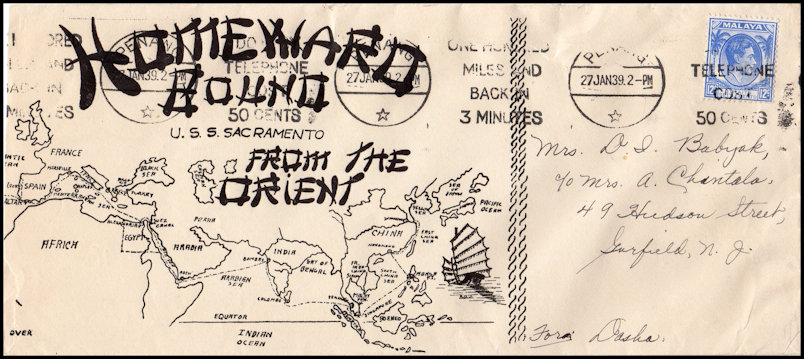 HOMEWARD
BOUND
U.S.S. SACRAMENTO
FROM THE
ORIENT
PENANG
27 JAN 39. 2-PM
TELEPHONE
50 CENTS
PENANG
27 JAN 39. 2-PM
ONE HUNDRED
MILES AND
BACK IN
3 MINUTES
PENANG
27 JAN 39. 2-PM
TELEPHONE
COST
50 CENTS
MALAYA
12 c
Mrs. D. I. Babyak,
c/o Mrs. A. Chantala
49 Hudson Street,
Garfield, N. J.
For: Dasha.
FRANCE
SPAIN
BLACK SEA
TURKEY
SEA
EGYPT
SUEZ CANAL
AFRICA
ARABIA
PERSIA
ARABIAN
SEA
INDIA
BOMBAY
COLOMBO
BAY OF
BENGAL
CHINA
SEA OF JAPAN
PACIFIC
OCEAN
EAST
CHINA
SEA
SOUTH
CHINA
SEA
BORNEO
EQUATOR
INDIAN
OCEAN
OVER